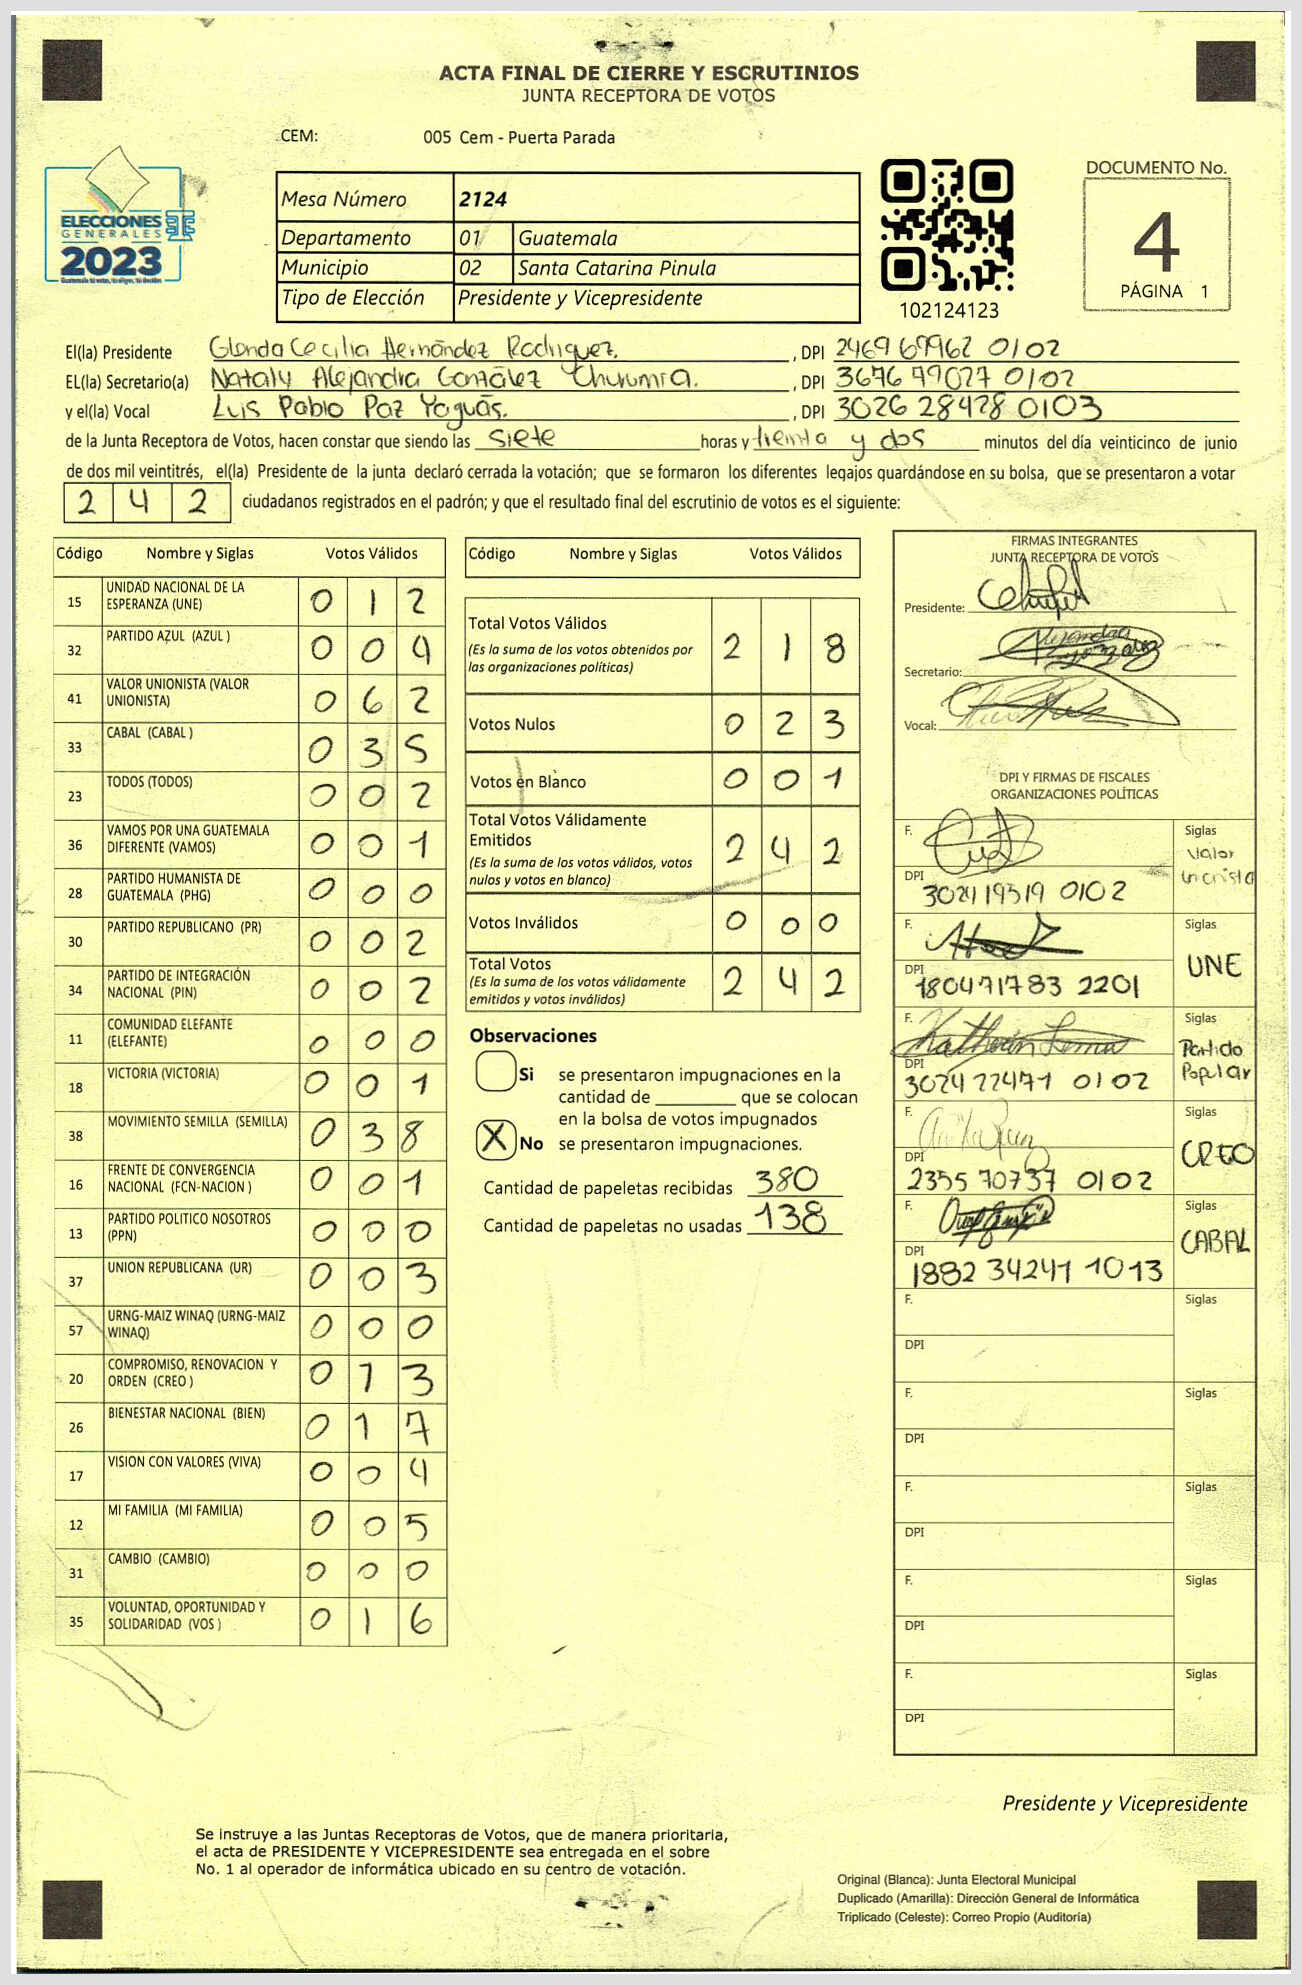 ACTA FINAL DE CIERRE Y ESCRUTINIOS
JUNTA RECEPTORA DE VOTOS
CEM: 005 Cem - Puerta Parada
ELECCIONES
GENERALES
2023
Mesa Número 2124
Departamento 01 Guatemala
Municipio 02 Santa Catarina Pinula
Tipo de Elección Presidente y Vicepresidente
102124123
DOCUMENTO No.
4
PÁGINA 1
El(la) Presidente Glenda Cecilia Hernández Rodriguez. , DPI 2469 67962 0102
EL(la) Secretario(a) Nataly Alejandra González Churumia. , DPI 3676 79027 0102
y el(la) Vocal Luis Pablo Paz Yaguás. , DPI 3026 28428 0103
de la Junta Receptora de Votos, hacen constar que siendo las siete horas y treinta y dos minutos del día veinticinco de junio
de dos mil veintitrés, el(la) Presidente de la junta declaró cerrada la votación; que se formaron los diferentes legajos guardándose en su bolsa, que se presentaron a votar
2 4 2 ciudadanos registrados en el padrón; y que el resultado final del escrutinio de votos es el siguiente:
Código Nombre y Siglas Votos Válidos
15 UNIDAD NACIONAL DE LA ESPERANZA (UNE) 0 1 2
32 PARTIDO AZUL (AZUL ) 0 0 4
41 VALOR UNIONISTA (VALOR UNIONISTA) 0 6 2
33 CABAL (CABAL ) 0 3 5
23 TODOS (TODOS) 0 0 2
36 VAMOS POR UNA GUATEMALA DIFERENTE (VAMOS) 0 0 1
28 PARTIDO HUMANISTA DE GUATEMALA (PHG) 0 0 0
30 PARTIDO REPUBLICANO (PR) 0 0 2
34 PARTIDO DE INTEGRACIÓN NACIONAL (PIN) 0 0 2
11 COMUNIDAD ELEFANTE (ELEFANTE) 0 0 0
18 VICTORIA (VICTORIA) 0 0 1
38 MOVIMIENTO SEMILLA (SEMILLA) 0 3 8
16 FRENTE DE CONVERGENCIA NACIONAL (FCN-NACION ) 0 0 1
13 PARTIDO POLITICO NOSOTROS (PPN) 0 0 0
37 UNION REPUBLICANA (UR) 0 0 3
57 URNG-MAIZ WINAQ (URNG-MAIZ WINAQ) 0 0 0
20 COMPROMISO, RENOVACION Y ORDEN (CREO ) 0 1 3
26 BIENESTAR NACIONAL (BIEN) 0 1 7
17 VISION CON VALORES (VIVA) 0 0 4
12 MI FAMILIA (MI FAMILIA) 0 0 5
31 CAMBIO (CAMBIO) 0 0 0
35 VOLUNTAD, OPORTUNIDAD Y SOLIDARIDAD (VOS ) 0 1 6
Código Nombre y Siglas Votos Válidos
Total Votos Válidos 2 1 8
(Es la suma de los votos obtenidos por
las organizaciones políticas)
Votos Nulos 0 2 3
Votos en Blanco 0 0 1
Total Votos Válidamente
Emitidos 2 4 2
(Es la suma de los votos válidos, votos
nulos y votos en blanco)
Votos Inválidos 0 0 0
Total Votos 2 4 2
(Es la suma de los votos válidamente
emitidos y votos inválidos)
Observaciones
Si se presentaron impugnaciones en la
cantidad de ________ que se colocan
en la bolsa de votos impugnados
X No se presentaron impugnaciones.
Cantidad de papeletas recibidas 380
Cantidad de papeletas no usadas 138
FIRMAS INTEGRANTES
JUNTA RECEPTORA DE VOTOS
Presidente:
Secretario:
Vocal:
DPI Y FIRMAS DE FISCALES
ORGANIZACIONES POLÍTICAS
F. Siglas Valor
DPI 3024 19519 0102
F. Siglas UNE
DPI 1804 71783 2201
F. Katherin Lemus Siglas Partido Popular
DPI 3024 22471 0102
F. Siglas CREO
DPI 2355 70737 0102
F. Siglas CABAL
DPI 1882 34241 1013
F. Siglas
DPI
F. Siglas
DPI
F. Siglas
DPI
F. Siglas
DPI
F. Siglas
DPI
Presidente y Vicepresidente
Se instruye a las Juntas Receptoras de Votos, que de manera prioritaria,
el acta de PRESIDENTE Y VICEPRESIDENTE sea entregada en el sobre
No. 1 al operador de informática ubicado en su centro de votación.
Original (Blanca): Junta Electoral Municipal
Duplicado (Amarilla): Dirección General de Informática
Triplicado (Celeste): Correo Propio (Auditoría)